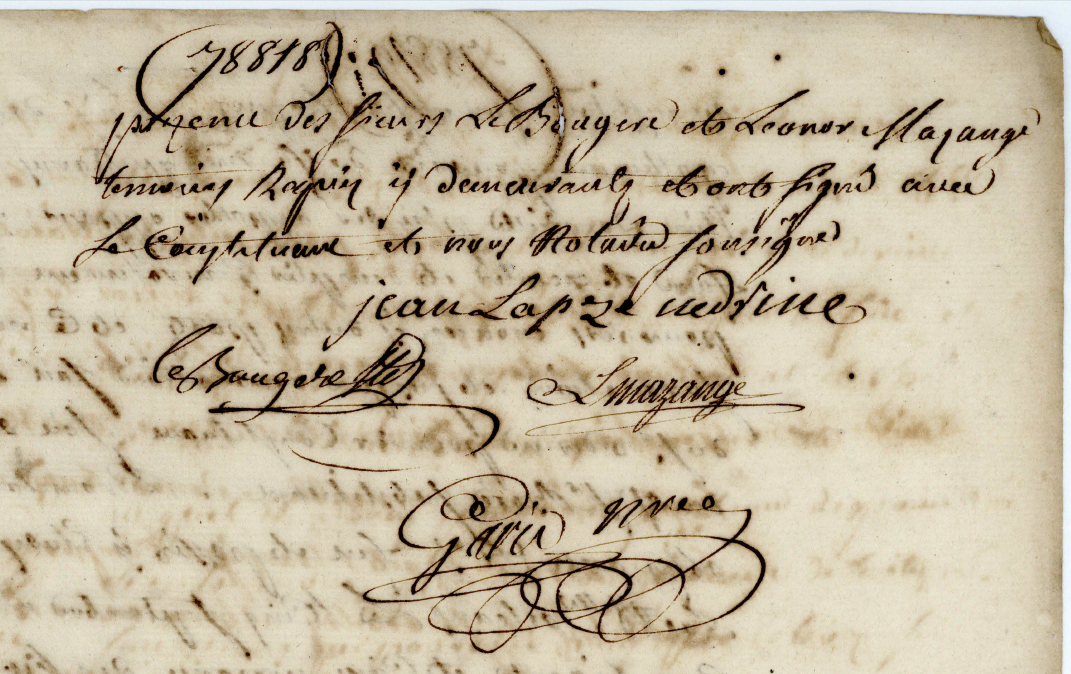 78818
presence des sieurs Le Bougere et Leonor Mazange
temoins Requis y demeurants et ont signé avec
Le Constituant et nous Notaire soussigné
jean Lapze medrine
le Bougere
L mazange
Garü nre